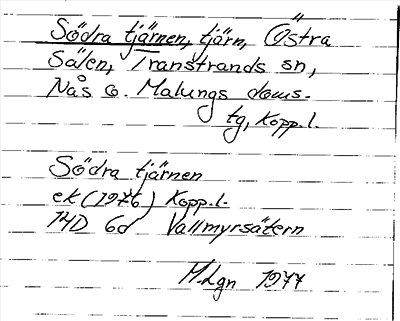 Södra tjärnen, tjärn, Östra
Sälen, Transtrands sn,
Nås o. Malungs doms-
tg, Kopp.l.
Södra tjärnen
ek (1976) Kopp.l.
14D 6d Vallmyrsätern
M.Lgn 1977